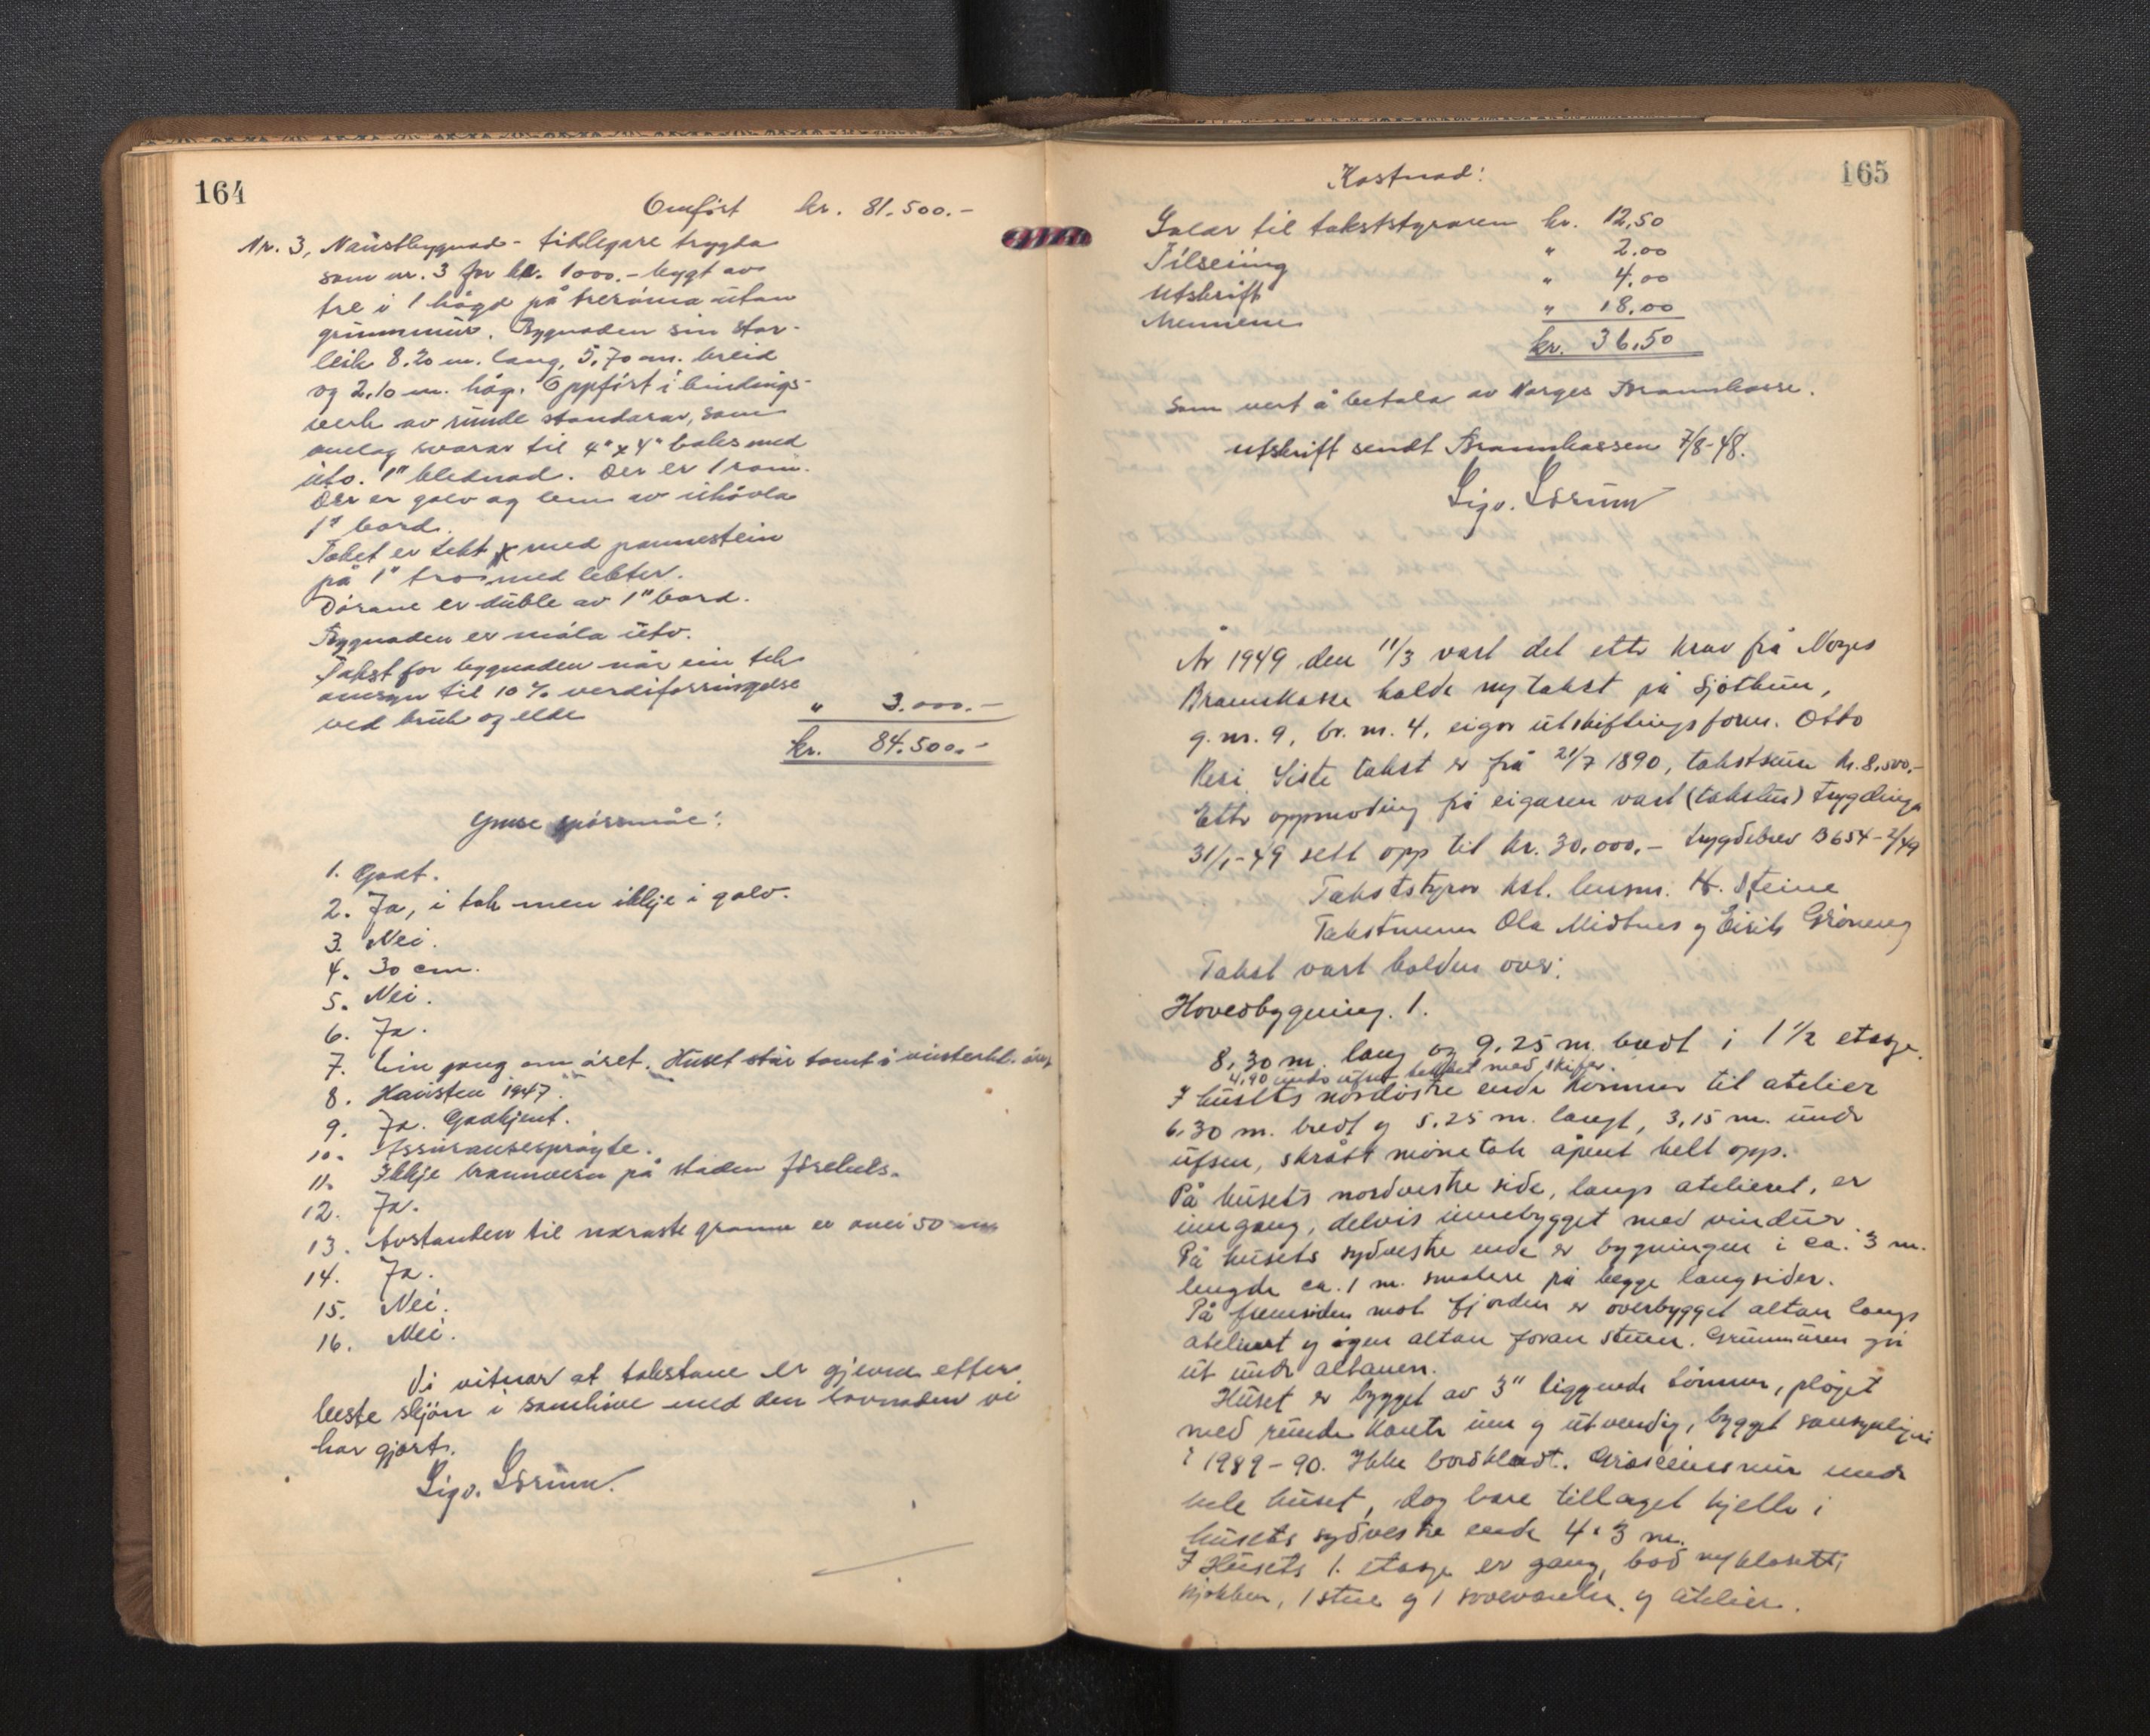 164
Omført kr. 81.500.-
Nr. 3, Naustbygnad - tidlegare trygda
som nr. 3 for kr. 1000.- bygt av
tre i 1 høgd på treróma utan
grunnmur. Bygnaden sin stor-
leik 8.20 m. lang, 5,70 m. breid
og 2,10 m. høg. Oppført i bindings-
verk av runde standarar, som
omlag svarar til 4" x 4" boks med
utv. 1" klednad. Der er 1 rom.
Der er golv og lem av uhøvla
1" bord.
Taket er tekt med pannestein
på 1" tro med lekter.
Dørane er duble av 1" bord.
Bygnaden er måla utv.
Takst for bygnaden når ein tek
omsyn til 10% verdiforringelse
ved bruk og elde " 3.000.-
kr. 84.500.-
Ymse spørsmål:
1. Godt.
2. Ja, i tak men ikkje i golv.
3. Nei.
4. 30 cm.
5. Nei.
6. Ja.
7. Ein gong om året. Huset står tomt i vinterhl. året
8. Hausten 1947.
9. Ja. Godkjent.
10. Assuransesprøyte.
11. Ikkje brannvern på staden førebels.
12. Ja.
13. Avstanden til næraste granne er over 50 m
14. Ja.
15. Nei.
16. Nei.
Vi vitnar at takstane er gjevne etter
beste skjøn i samhøve med den lovnaden vi
har gjort.
Sigv. Sørum.
165
Kostnad:
Salær til takststyraren kr. 12,50
Tilseiing " 2.00
Utskrift " 4,00
Mennene " 18.00
kr. 36,50
som vert å betala av Norges Brannkasse.
Utskrift sendt Brannkassen 7/8-48.
Sigv. Sørum
År 1949 den 11/3 vart det ettr krav frå Norges
Brannkasse halde ny takst på Sjøtun,
g.nr. 9, br. nr. 4, eigar utskiftingsform. Otto
Resi. Siste takst er frå 21/7 1890, takstsum kr. 8,500,-
Ettr oppmoding frå eigaren vart (taksten) trygdinga
31/1-49 sett opp til kr. 30,000,- trygdebrev B654-2/49
Takststyrar kst. lensm. H. Steine
Takstmenn Ola Midtnes og Eirik Grøneng
Takst vart halden over:
Hovedbygning. 1.
8,30 m. lang og 9,25 m. bredt i 1 1/2 etasje.
4,90 undr ufsur tekket med skifer.
I husets nordøstre ende kommer til atelier
6,30 m. bredt og 5,25 m. langt, 3,15 m. undr
ufsen, skrått mønetak åpent helt opp.
På husets nordvestre side, langs atelieret, er
inngang, delvis innebygget med vinduer.
På husets sydvestre ende er bygningen i ca. 3 m.
lengde ca. 1 m. smalere på begge langsider.
På fremsiden mot fjorden er overbygget altan langs
atelieret og åpen altan foran stuen. Grunnmuren går
ut undr altanen.
Huset er bygget av 3" liggende tømmer, pløyet
med runde kanter inn og utvendig, bygget sansynligvis
i 1989-90. Ikke bordkledt. Gråsteinsmur undr
hele huset, dog bare tillaget kjeller i
husets sydvestre ende 4 x 3 m.
I Husets 1. etasje er gang, bod m/klosett,
kjøkken, 1 stue og 1 soveværelse og atelier.